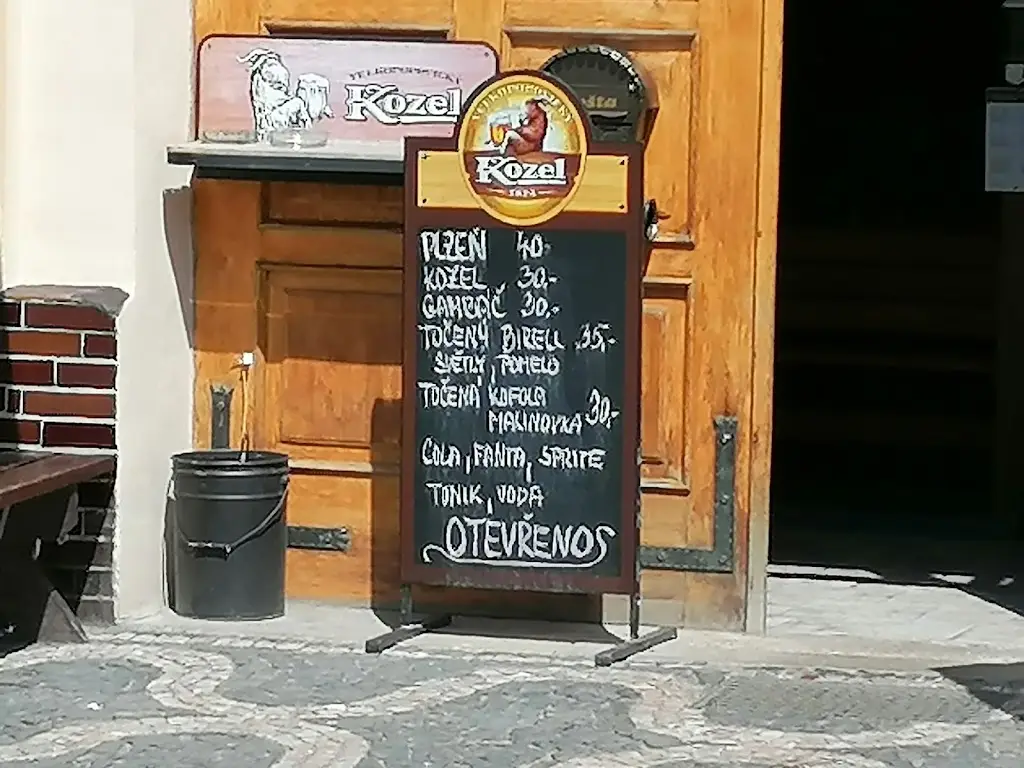 VELKOPOPOVICKÝ
Kozel
VELKOPOPOVICKÝ
Kozel
1874
PLZEŇ 40.-
KOZEL 30.-
GAMBÁČ 30.-
TOČENÝ BIRELL 35,-
SVĚTLÝ, POMELO
TOČENÁ KOFOLA
MALINOVKA 30,-
COLA, FANTA, SPRITE
TONIK, VODA
OTEVŘENO